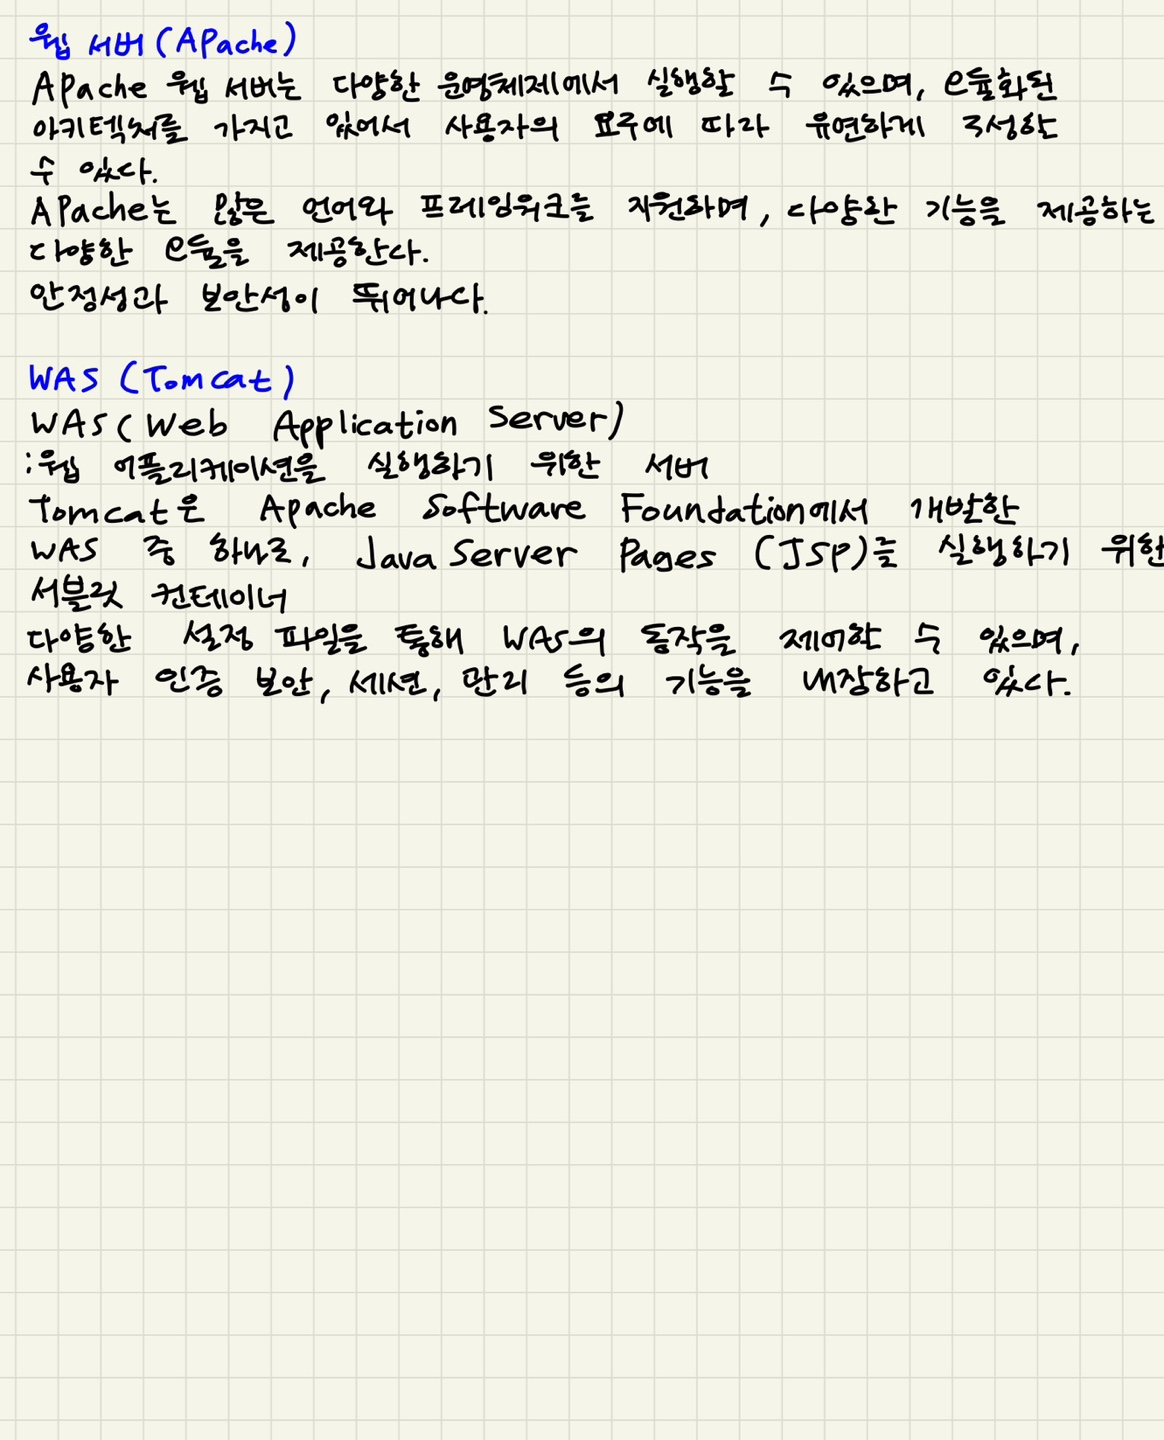 웹 서버(APache)
APache 웹 서버는 다양한 운영체제에서 실행할 수 있으며, 모듈화된
아키텍처를 가지고 있어서 사용자의 요구에 따라 유연하게 구성할
수 있다.
APache는 많은 언어와 프레임워크를 지원하며, 다양한 기능을 제공하는
다양한 모듈을 제공한다.
안정성과 보안성이 뛰어나다.
WAS (Tomcat)
WAS(Web Application Server)
:웹 어플리케이션을 실행하기 위한 서버
Tomcat은 Apache Software Foundation에서 개발한
WAS 중 하나로, Java Server Pages (JSP)를 실행하기 위한
서블릿 컨테이너
다양한 설정 파일을 통해 WAS의 동작을 제어할 수 있으며,
사용자 인증 보안, 세션, 관리 등의 기능을 내장하고 있다.